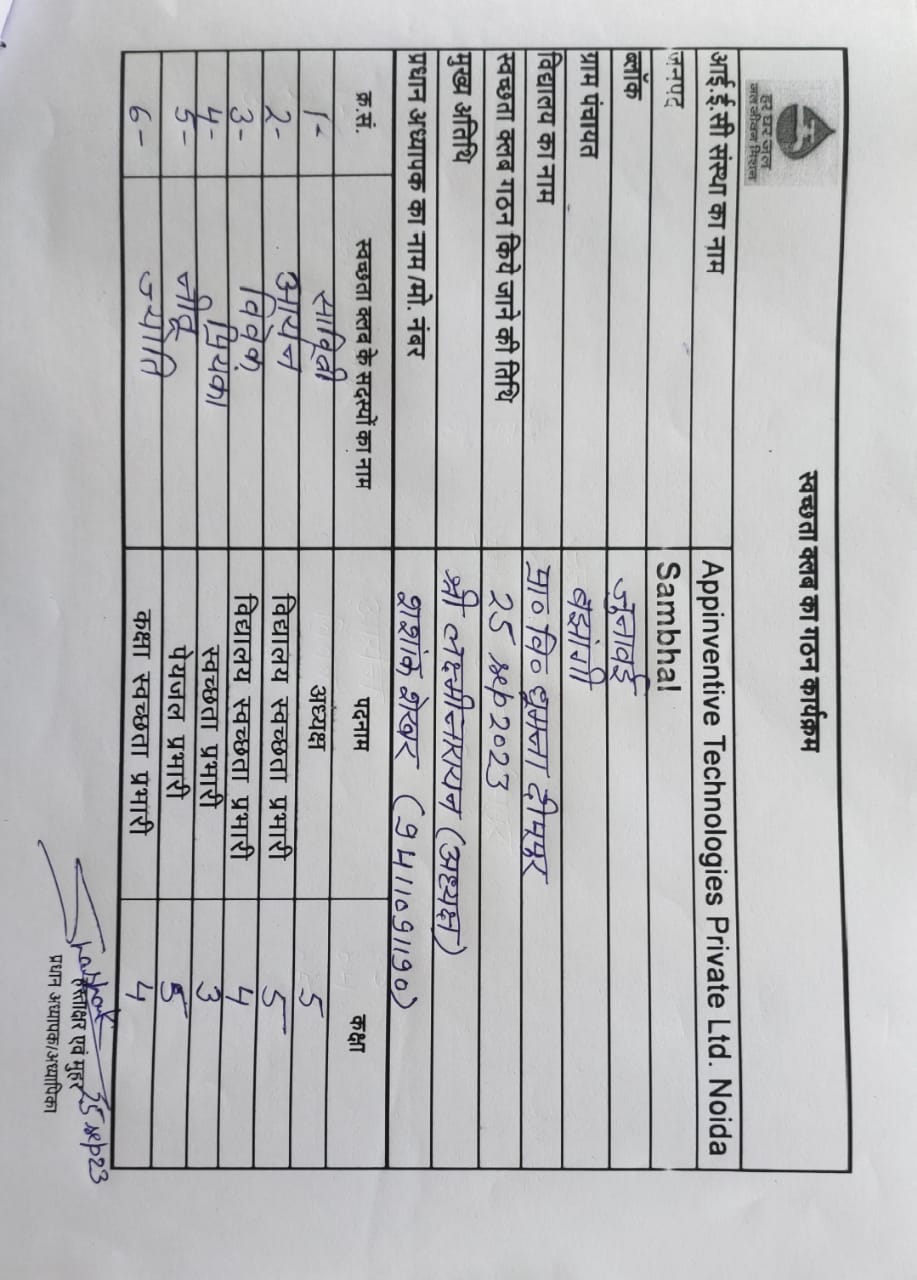 हर घर जल
जल जीवन मिशन
स्वच्छता क्लब का गठन कार्यक्रम
आई.ई.सी संस्था का नाम Appinventive Technologies Private Ltd. Noida
जनपद Sambhal
ब्लॉक जुनावई
ग्राम पंचायत बझांगी
विद्यालय का नाम प्रा० वि० घुमना दीपपुर
स्वच्छता क्लब गठन किये जाने की तिथि 25 sep 2023
मुख्य अतिथि श्री लक्ष्मीनारायन (अध्यक्ष)
प्रधान अध्यापक का नाम/मो. नंबर शशांक शेखर (9411091190)
क्र.सं. स्वच्छता क्लब के सदस्यों का नाम पदनाम कक्षा
1- सावित्री अध्यक्ष 5
2- आयन विद्यालय स्वच्छता प्रभारी 5
3- विवेक विद्यालय स्वच्छता प्रभारी 4
4- प्रियंका स्वच्छता प्रभारी 3
5- नीटू पेयजल प्रभारी 5
6- ज्योति कक्षा स्वच्छता प्रभारी 4
25 sep 23
हस्ताक्षर एवं मुहर
प्रधान अध्यापक/अध्यापिका